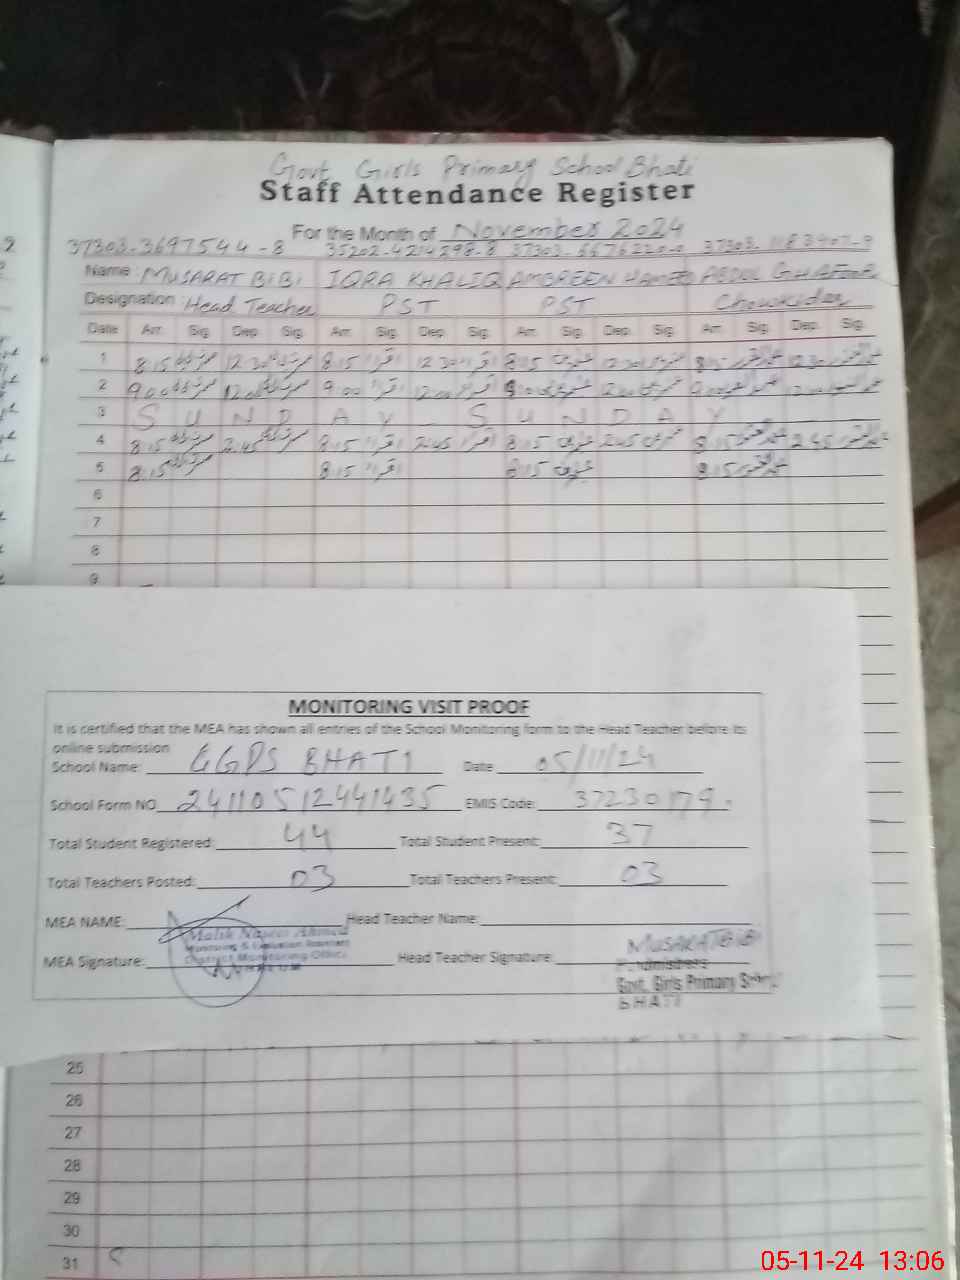 Govt Girls Primary School Bhati
Staff Attendance Register
For the Month of November 2024
37303-3697544-8 35202-4214298-8 37303-
Name: MUSARAT BIBI IQRA KHALIQ AMBREEN HAMEED ABDUL GHAFOOR
Designation Head Teacher PST PST Chowkidar
Date Arr. Sig. Dep. Sig. Arr. Sig. Dep. Sig. Arr. Sig. Dep. Sig. Arr. Sig. Dep. Sig.
1 8:15 12:30 8:15 اقراء 12:30 اقراء 8:15 12:30 8:15 12:30
2 9:00 12:00 9:00 اقراء 12:00 اقراء 9:00 12:00 9:00 12:00
3 S U N D A Y S U N D A Y
4 8:15 2:45 8:15 اقراء 2:45 اقراء 8:15 2:45 8:15 2:45
5 8:15 8:15 اقراء 8:15 8:15
6
7
8
9
MONITORING VISIT PROOF
It is certified that the MEA has shown all entries of the School Monitoring form to the Head Teacher before its
online submission
School Name: GGPS BHATI Date 05/11/24
School Form NO 24110512441435 EMIS Code: 37230179
Total Student Registered: 44 Total Student Present: 37
Total Teachers Posted: 03 Total Teachers Present: 03
MEA NAME: Head Teacher Name:
Malik Naseer Ahmed
Monitoring & Evaluation Assistant
District Monitoring Office
MEA Signature: Head Teacher Signature: MUSARAT BIBI
Headmistress
Govt. Girls Primary School
BHATI
25
26
27
28
29
30
31
05-11-24 13:06